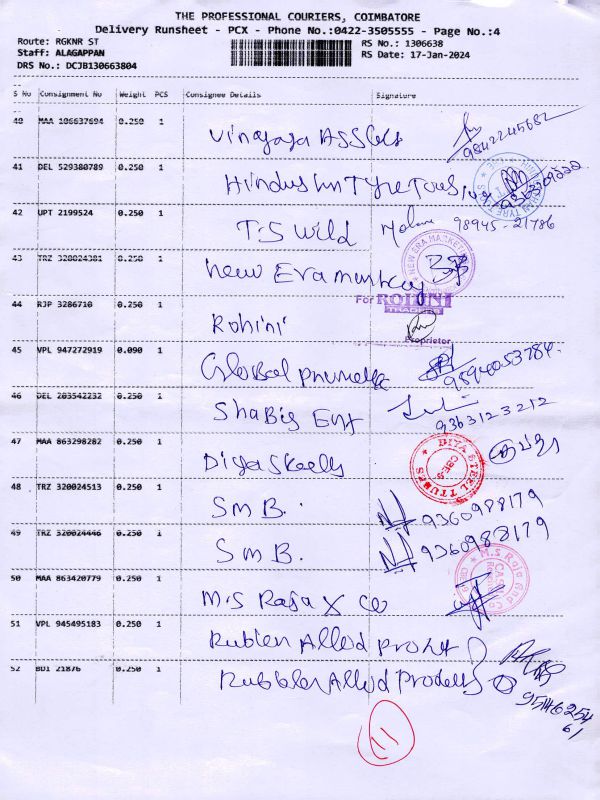 THE PROFESSIONAL COURIERS, COIMBATORE
Delivery Runsheet - PCX - Phone No.:0422-3505555 - Page No.:4
Route: RGKNR ST RS No.: 1306638
Staff: ALAGAPPAN RS Date: 17-Jan-2024
DRS No.: DCJB130663804
S No Consignment No Weight PCS Consignee Details Signature
40 MAA 106637694 0.250 1
9842245682
41 DEL 529380789 0.250 1 Hindustan Tyre
42 UPT 2199524 0.250 1 T.S Wild 98945 - 21786
43 TRZ 320024381 0.250 1 New Era
NEW ERA MARKETING
44 RJP 3286710 0.250 1 Rohini
For ROHINI
TRADERS
Proprietor
45 VPL 947272919 0.090 1 Global
9894053784.
46 DEL 203542232 0.250 1 Shabig Ent
9363123212
47 MAA 863298282 0.250 1 Diya
DIYA STEEL TUBES
48 TRZ 320024513 0.250 1 SMB. 9360988179
49 TRZ 320024446 0.250 1 SMB. 9360988179
50 MAA 863420779 0.250 1 M.S Raja & Co
M.S Raja And Co
51 VPL 945495183 0.250 1 Allied
52 BDI 21876 0.250 1 Rubber Allied
11